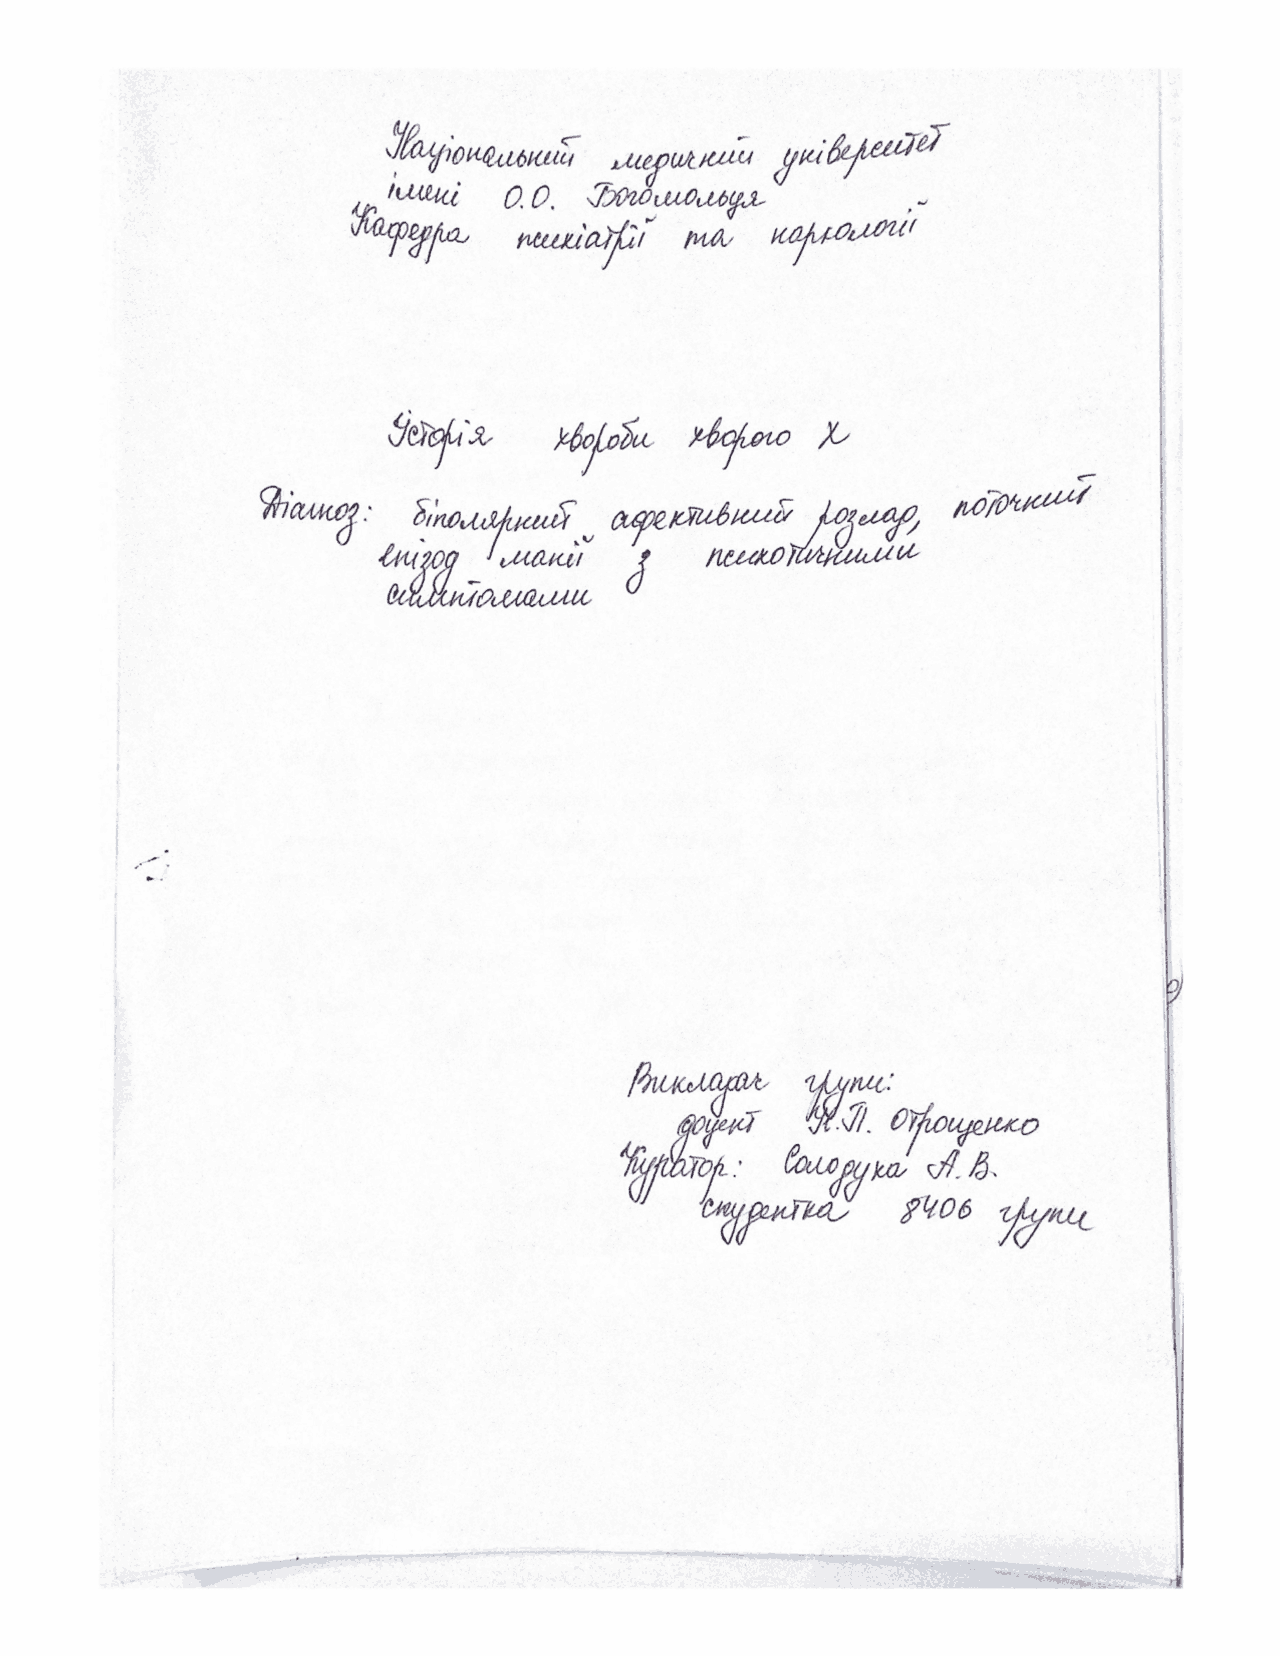 Національний медичний університет
імені О.О. Богомольця
Кафедра психіатрії та наркології
Історія хвороби хворого Х
Діагноз: біполярний афективний розлад, поточний
епізод манії з психотичними
симптомами
Викладач групи:
доцент К.П. Отрощенко
Куратор: Солодуха А.В.
студентка 8406 групи